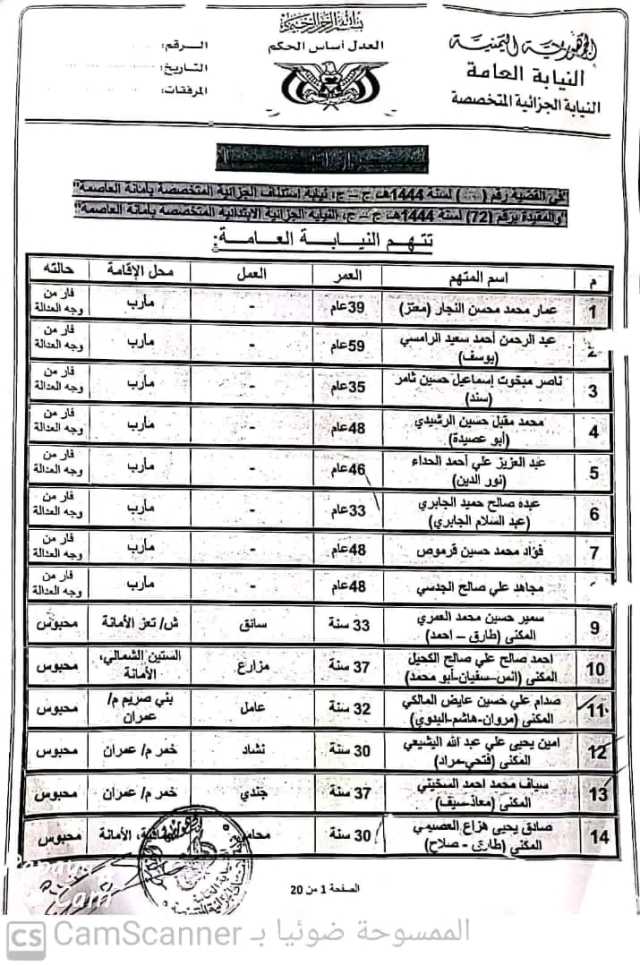 بسم الله الرحمن الرحيم
الجمهورية اليمنية
النيابة العامة
النيابة الجزائية المتخصصة
العدل أساس الحكم
الرقم:
التاريخ:
المرفقات:
في القضية رقم ( ) لسنة 1444هـ ج – ج، نيابة إستئناف الجزائية المتخصصة بأمانة العاصمة"
"والمقيدة برقم (72) لسنة 1444هـ ج – ج، النيابة الجزائية الابتدائية المتخصصة بأمانة العاصمة"
تتهم النيابة العامة:
م اسم المتهم العمر العمل محل الإقامة حالته
1 عمار محمد محسن النجار (معتز) 39عام - مارب فار من وجه العدالة
2 عبد الرحمن أحمد سعيد الرامسي (يوسف) 59عام - مارب فار من وجه العدالة
3 ناصر مبخوت إسماعيل حسين ثامر (سند) 35عام - مارب فار من وجه العدالة
4 محمد مقبل حسين الرشيدي (أبو عصيدة) 48عام - مارب فار من وجه العدالة
5 عبد العزيز علي أحمد الحداء (نور الدين) 46عام - مارب فار من وجه العدالة
6 عبده صالح حميد الجابري (عبد السلام الجابري) 33عام - مارب فار من وجه العدالة
7 فؤاد محمد حسين قرموص 48عام - مارب فار من وجه العدالة
مجاهد علي صالح الجدسي 48عام - مارب فار من وجه العدالة
9 سمير حسين محمد العمري المكنى (طارق – احمد) 33 سنة سائق ش/ تعز الأمانة محبوس
10 احمد صالح علي صالح الكحيل المكنى (انس–سفيان-أبو محمد) 37 سنة مزارع الستين الشمالي، الأمانة محبوس
11 صدام علي حسين عايض المالكي المكنى (مروان-هاشم-البدوي) 32 سنة عامل بني صريم م/ عمران محبوس
12 امين يحيى علي عبد الله اليشيعي المكنى (فتحي-مراد) 30 سنة نشاد خمر م/ عمران محبوس
13 سياف محمد احمد السخيني المكنى (معاذ-سيف) 37 سنة جندي خمر م/ عمران محبوس
14 صادق يحيى هزاع العصيمي المكنى (طارق - صلاح) 30 سنة الأمانة محبوس
الصفحة 1 من 20
CS CamScanner الممسوحة ضوئيا بـ